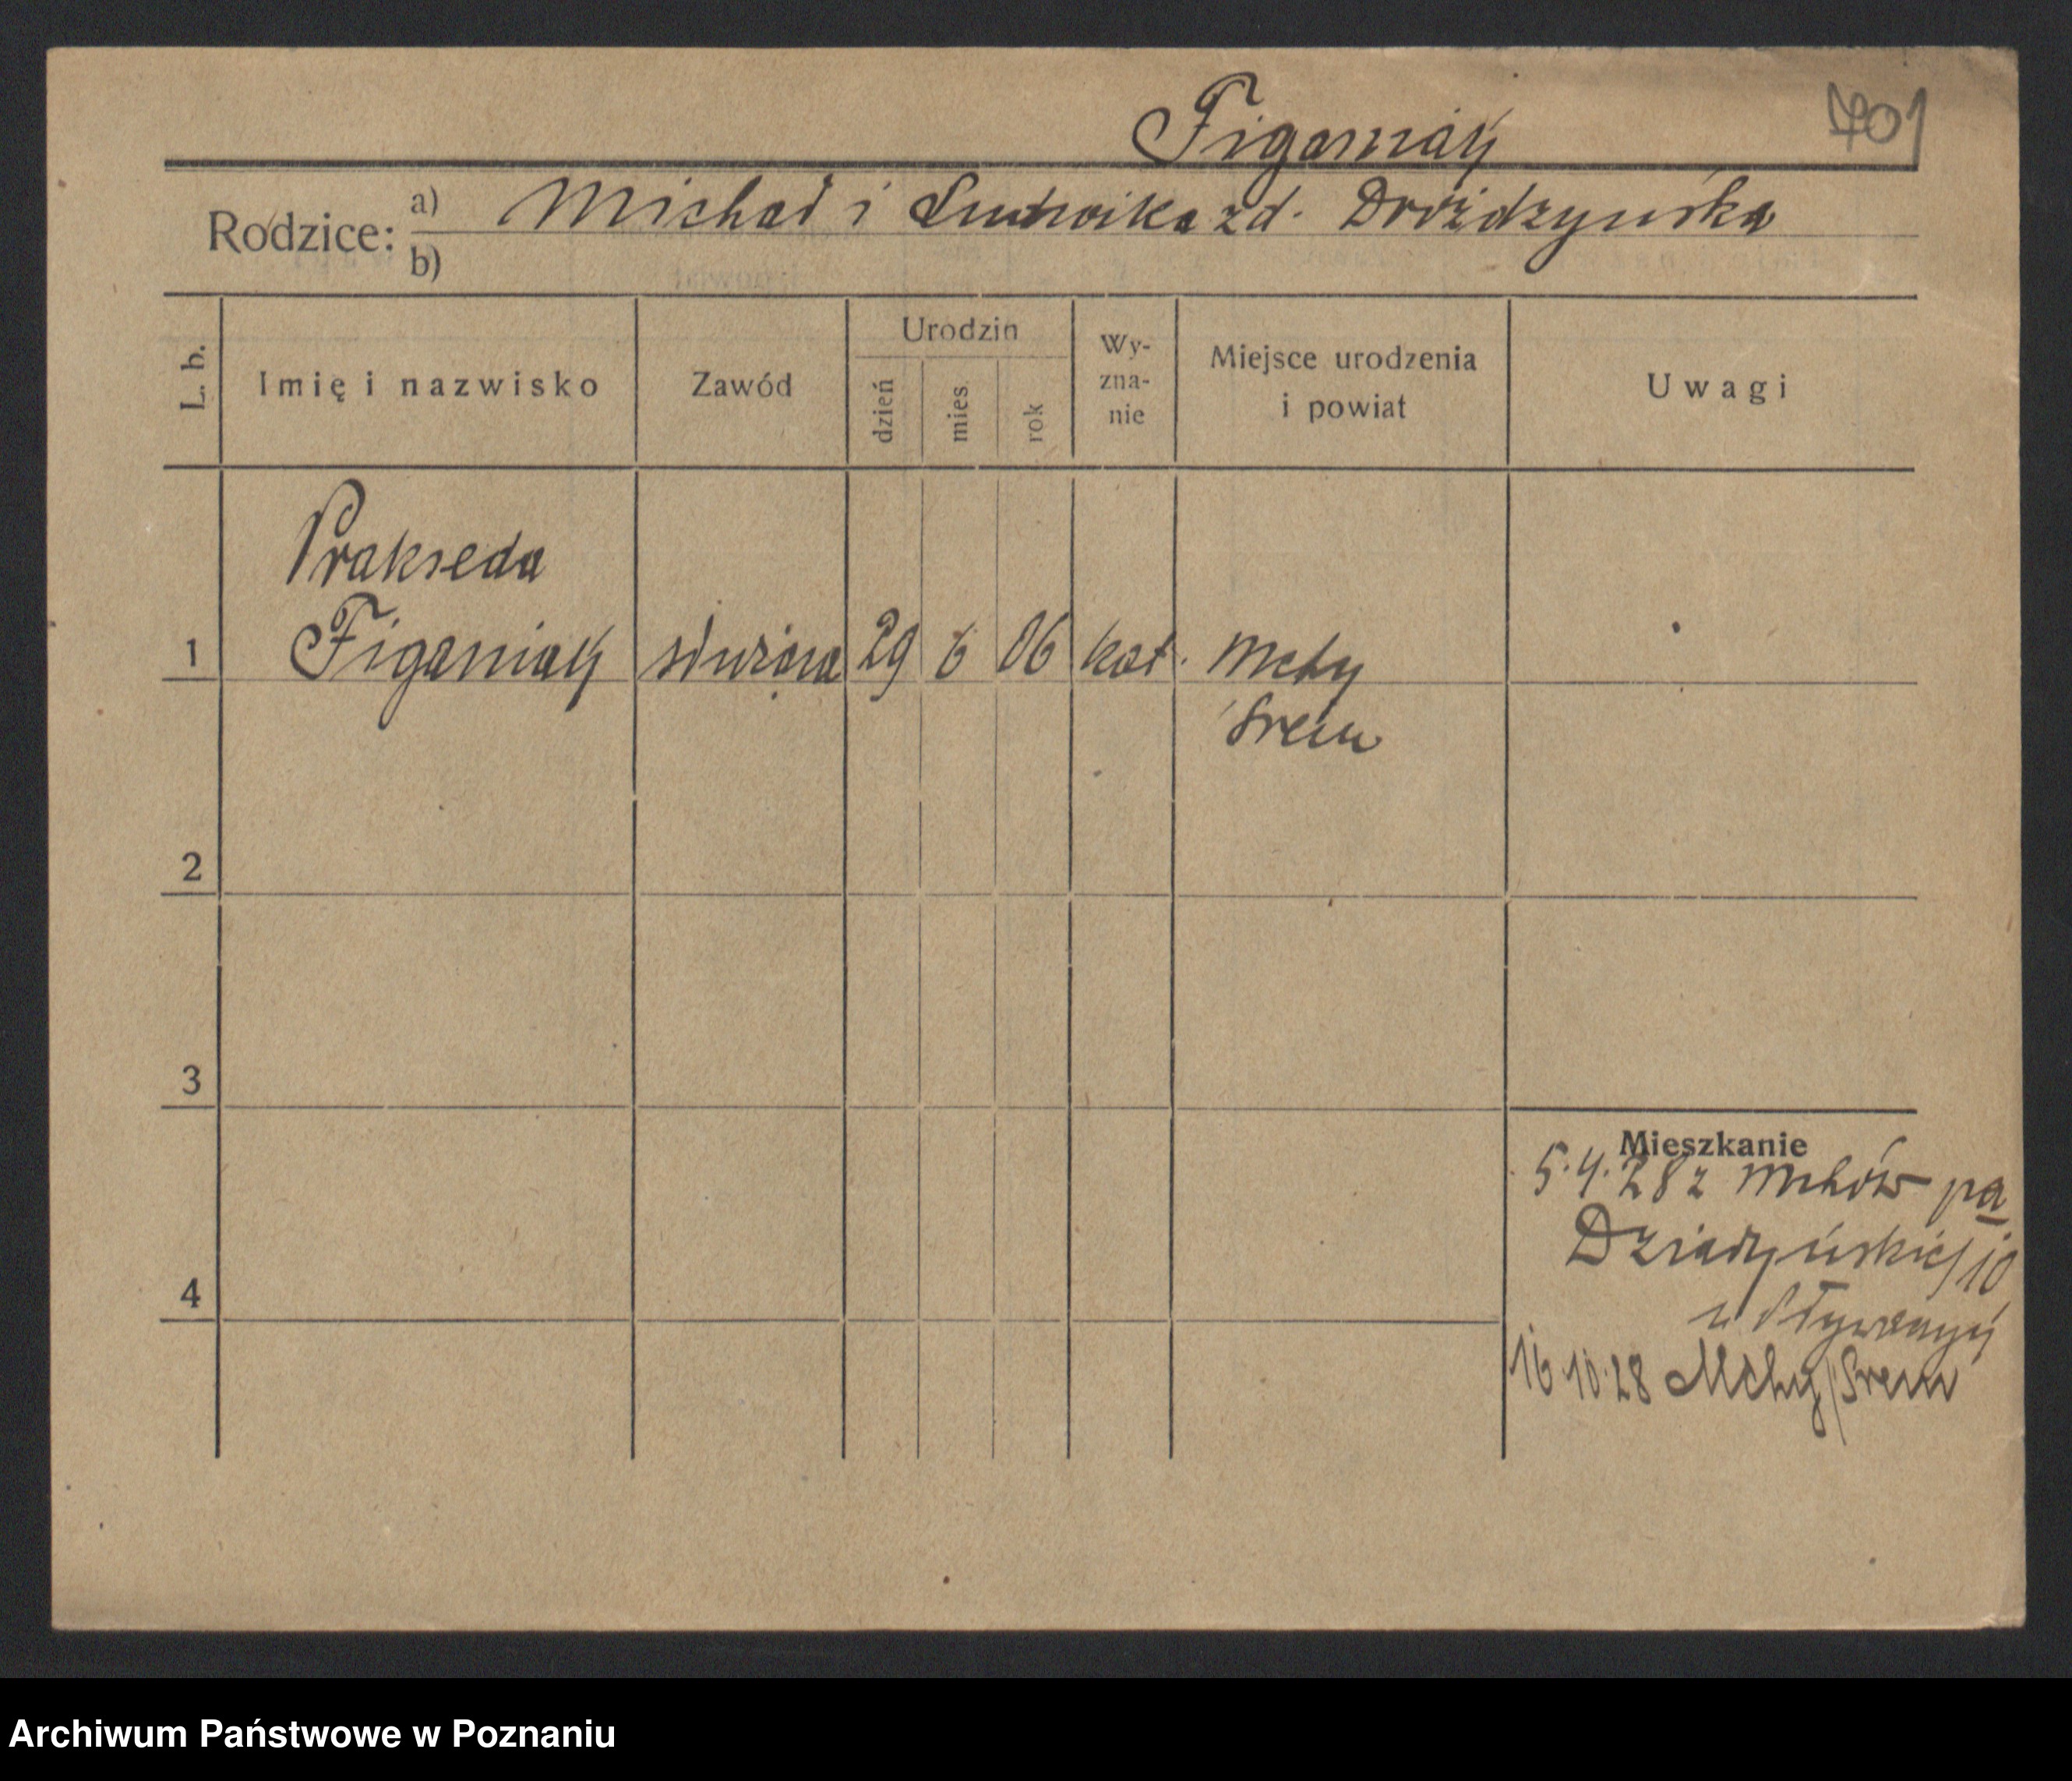 Figaniak
701
Rodzice: a) Michał i Ludwika zd. Drożdzyńska
b)
L. b.
Imię i nazwisko
Zawód
Urodzin
dzień
mies.
rok
Wy-
zna-
nie
Miejsce urodzenia
i powiat
Uwagi
Prakseda
1 Figaniak służąca 29 6 06 kat. Mchy
Śrem
2
3
4
Mieszkanie
5.4.28 z Mchów
Działyńskich 10
u
16.10.28 Mchy/Śrem
Archiwum Państwowe w Poznaniu